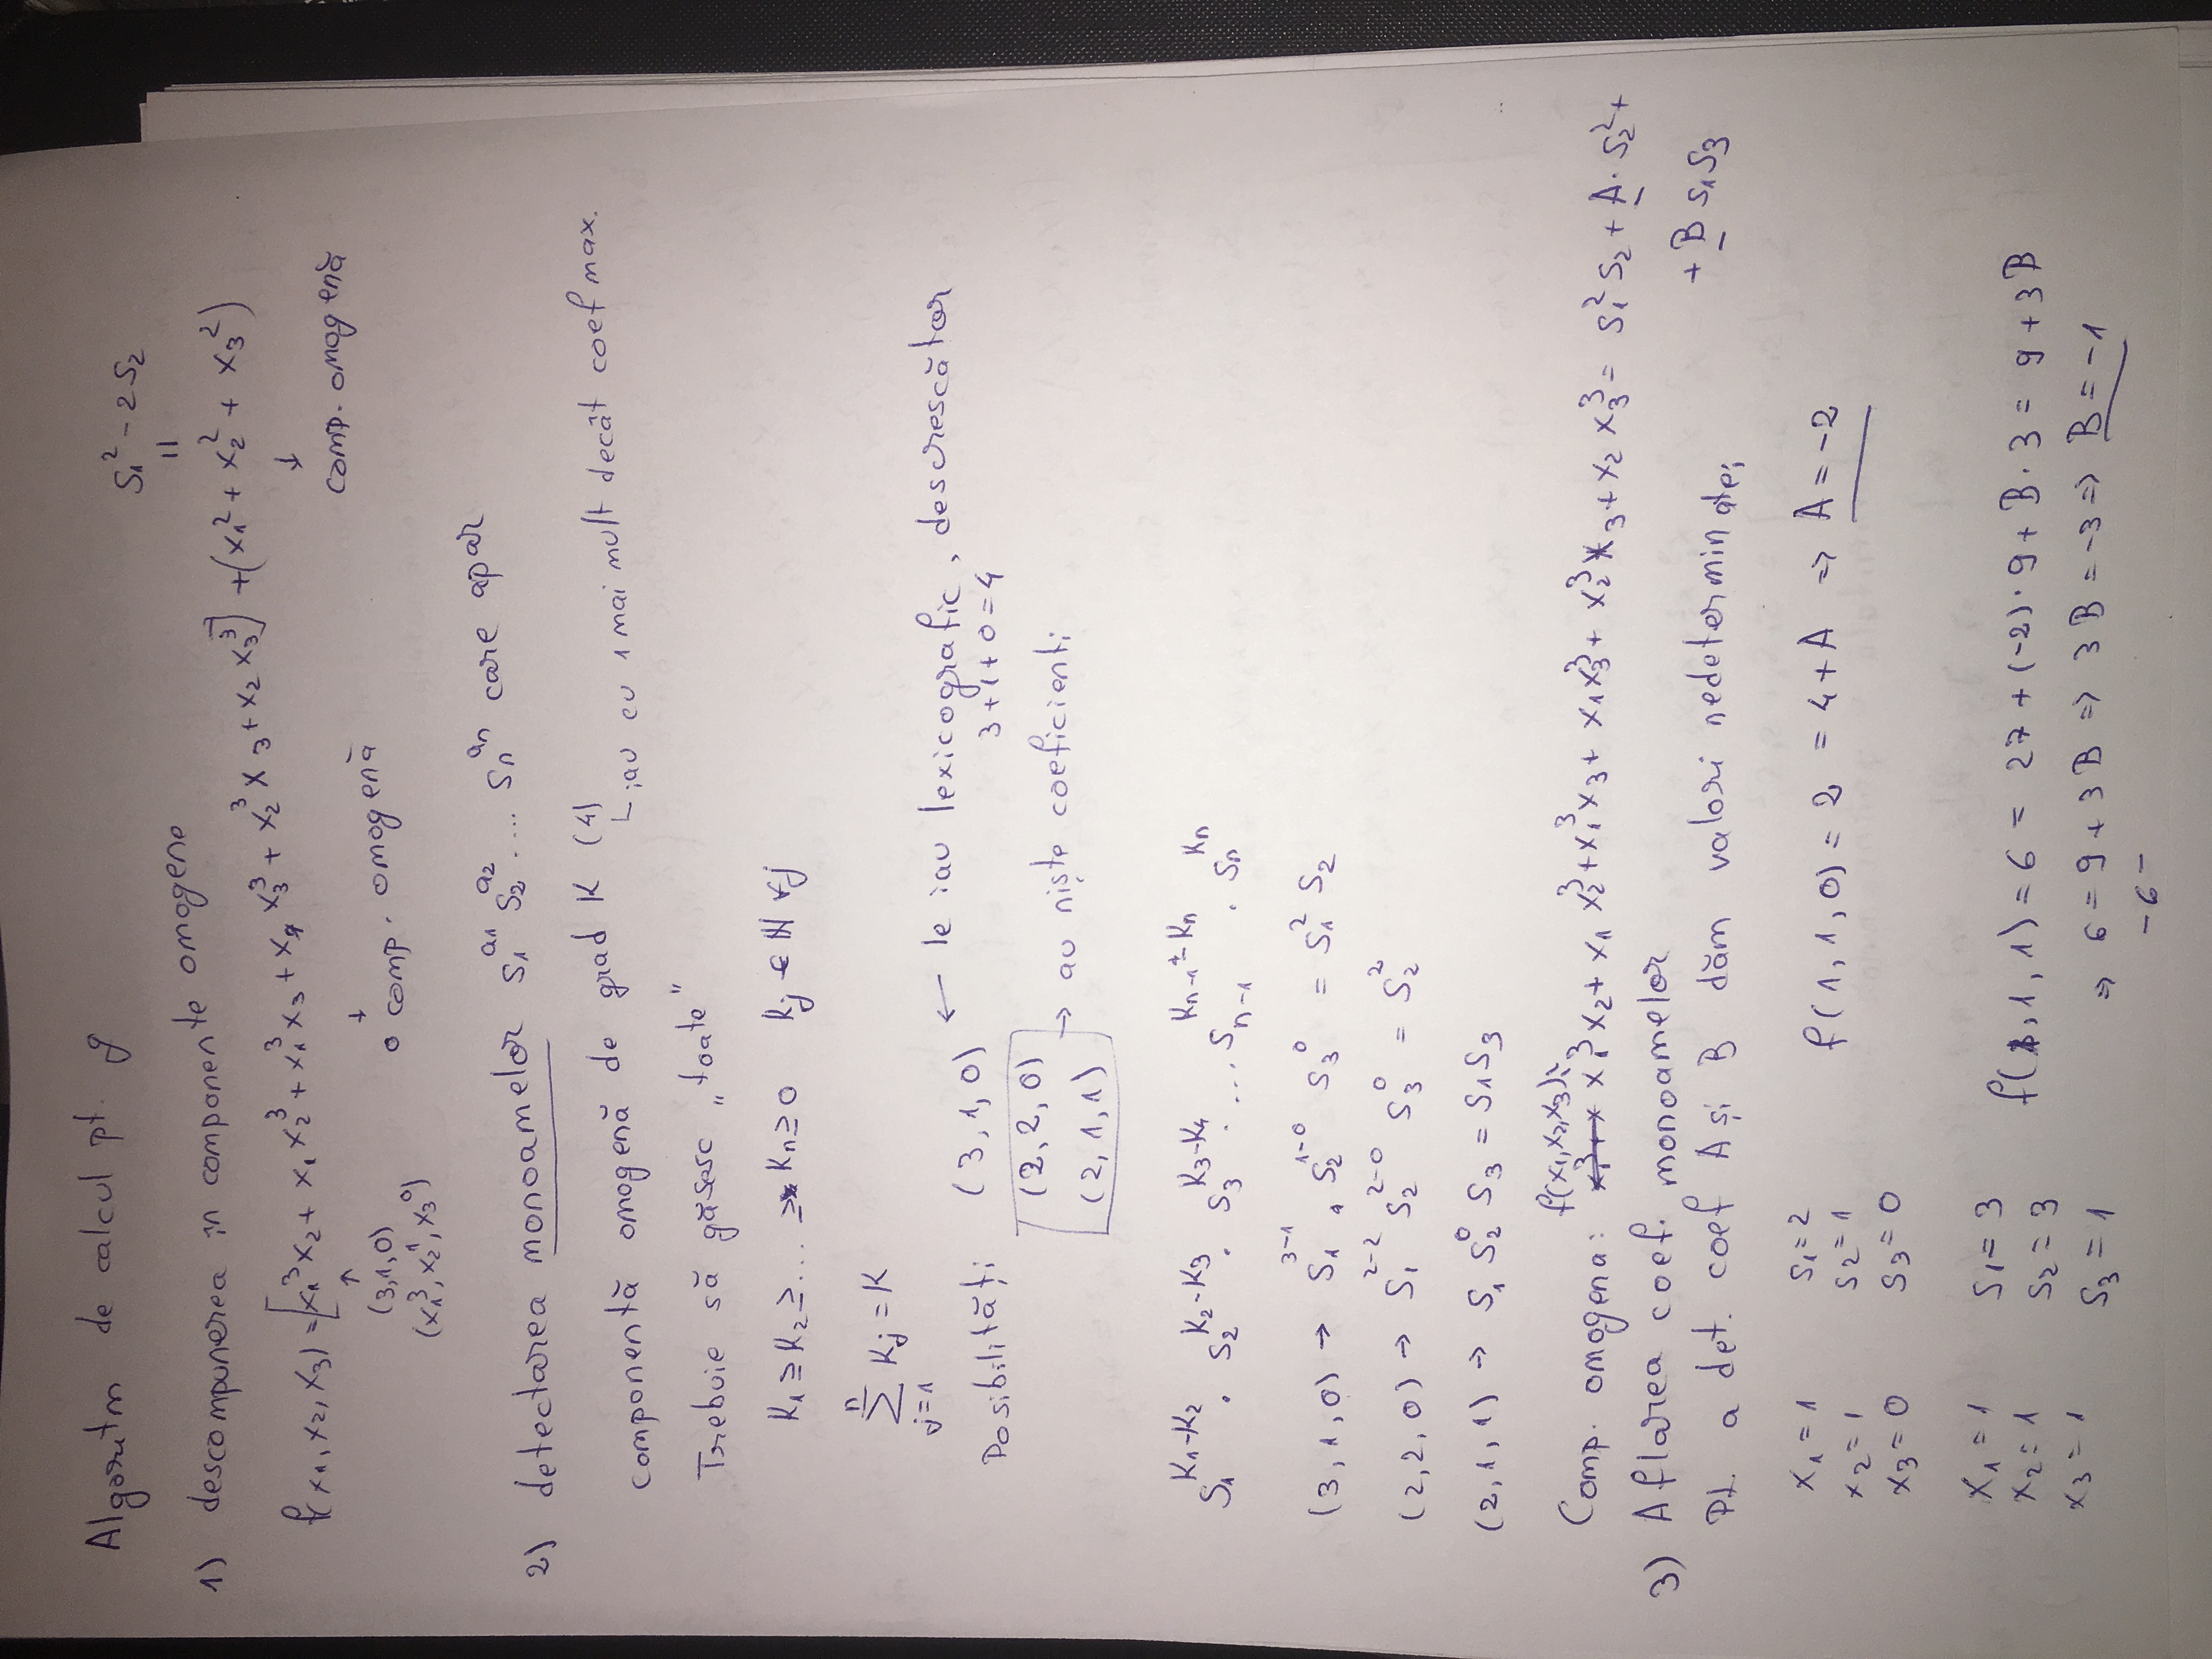 Algoritm de calcul pt. g
S₁² - 2S₂
||
1) descompunerea în componente omogene
f(x₁, x₂, x₃) = [x₁³x₂ + x₁x₂³ + x₁³x₃ + x₁x₃³ + x₂³x₃ + x₂x₃³] + (x₁² + x₂² + x₃²)
↑ ↓ ↓
(3,1,0) o comp. omogenă comp. omogenă
(x₁³, x₂¹, x₃⁰)
2) detectarea monoamelor S₁^a₁ S₂^a₂ .... Sₙ^aₙ care apar
componentă omogenă de grad K (4)
↳ iau cu 1 mai mult decât coef max.
Trebuie să găsesc „toate"
K₁ ≥ K₂ ≥ ... ≥ Kₙ ≥ 0 Kj ∈ ℕ ∀j
∑_{j=1}^{n} Kj = K
Posibilități (3,1,0) ← le iau lexicografic, descrescător
3+1+0=4
(2,2,0)
(2,1,1) → au niște coeficienti
S₁^(K₁-K₂) · S₂^(K₂-K₃) · S₃^(K₃-K₄) · ... S_{n-1}^(K_{n-1}-Kₙ) · Sₙ^Kₙ
(3,1,0) → S₁^(3-1) . S₂^(1-0) S₃⁰ = S₁² S₂
(2,2,0) → S₁^(2-2) S₂^(2-0) S₃⁰ = S₂²
(2,1,1) → S₁ S₂⁰ S₃ = S₁S₃
f(x₁,x₂,x₃)=
Comp. omogena: x₁³x₂ + x₁x₂³ + x₁³x₃ + x₁x₃³ + x₂³x₃ + x₂x₃³ = S₁²S₂ + A·S₂² +
+ B S₁S₃
3) Aflarea coef. monoamelor
Pt. a det. coef A și B dăm valori nedeterminatei
x₁ = 1 S₁ = 2
x₂ = 1 S₂ = 1 f(1,1,0) = 2 = 4 + A ⇒ A = -2
x₃ = 0 S₃ = 0
x₁ = 1 S₁ = 3
x₂ = 1 S₂ = 3 f(1,1,1) = 6 = 27 + (-2)·9 + B·3 = 9 + 3B
x₃ = 1 S₃ = 1 ⇒ 6 = 9 + 3B ⇒ 3B = -3 ⇒ B = -1
-6-